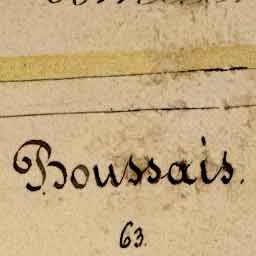 Boussais.
63.